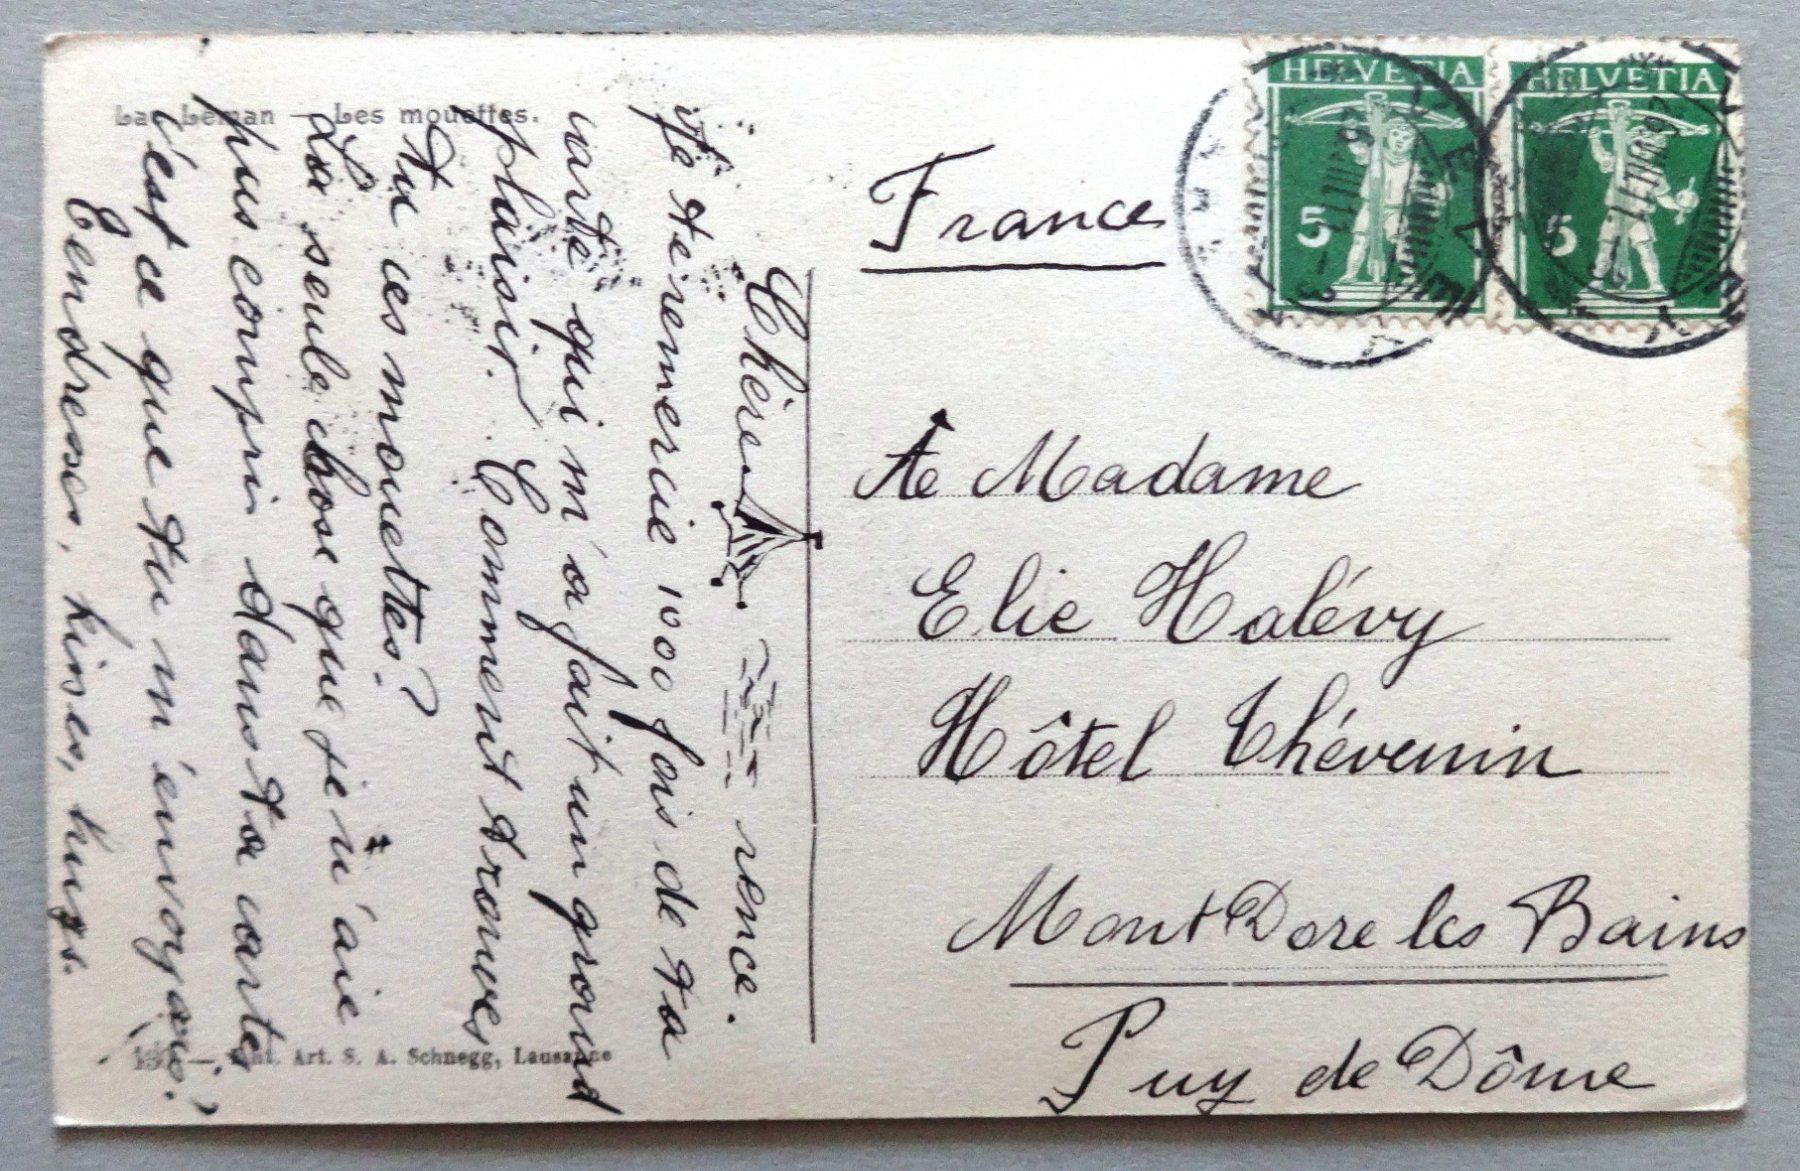 Lac Léman — Les mouettes.
HELVETIA
5
HELVETIA
5
France
A Madame
Elie Halévy
Hôtel Thévenin
Mont Dore les Bains
Puy de Dôme
Chère rence.
Je te remercie 1000 fois de ta
carte qui m'a fait un grand
plaisir. Comment trouves
tu ces mouettes?
La seule chose que je n'aie
pus compri dans ta carte
c'est ce que tu m'envoyais?
Tendresses, kises, hugs.
Art. S. A. Schnegg, Lausanne